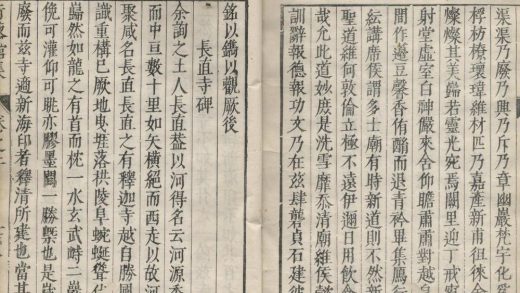 渠渠乃廢乃興乃斥乃章幽巖梵宇化
桴枋橑瓌瑋維材匹乃嘉產新甫徂徠僉
燦燦其美歸若靈光宛焉闕里迎丁戒
射堂虛室白神儼來舍仰瞻肅肅對越皇
間作籩豆馨香侑酳而退青衿畢集鴈行
紜講席俟謂多士廟有時新道則不然新
聖道維何敦倫立極不遠伊邇日用飲食
哉允此道妙庶是洗雪靡忝清廟維侯
訓辭報德報功文乃在茲肆礱貞石建彼
銘以鐫以觀厥後
長直寺碑
余詢之土人長直葢以河得名云河源
而中亘數十里如矢橫絕而西走以故河
聚咸名長直長直之有釋迦寺越自勝國
識重構已厥地落拱陵阜蜿蜒聳
巋然如龍之有首而枕一水玄武峙二
俛可灌仰可眺亦膠墨閒一勝槩也是
廢而茲寺適新海印者釋清所建也當其